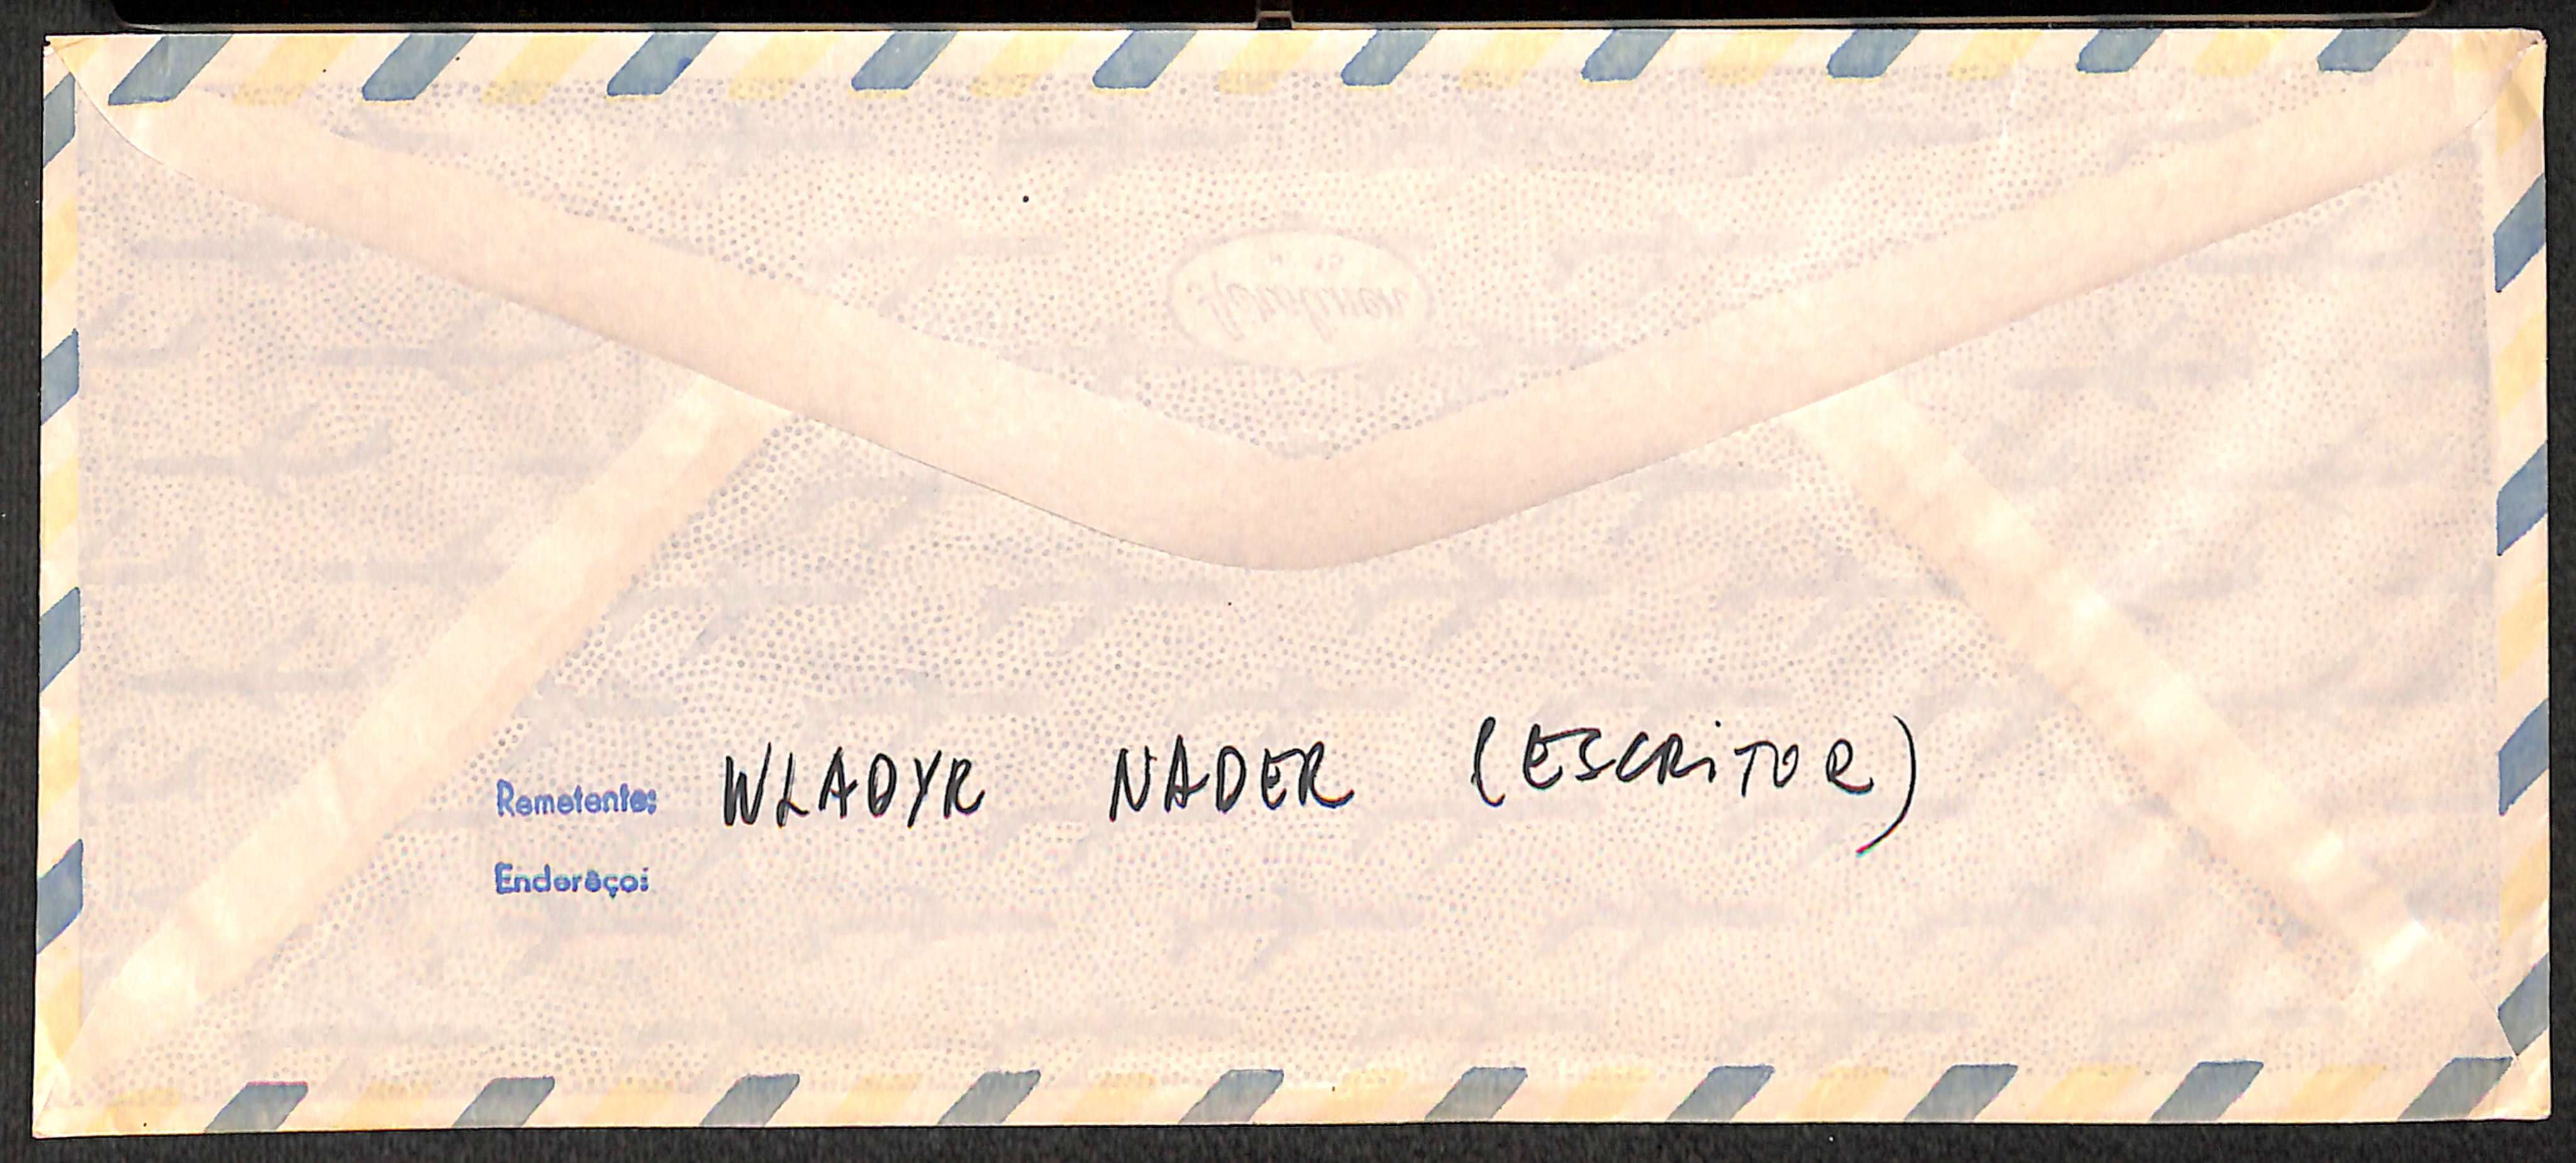 Remetente: WLADYR NADER (ESCRITOR)
Enderêço: